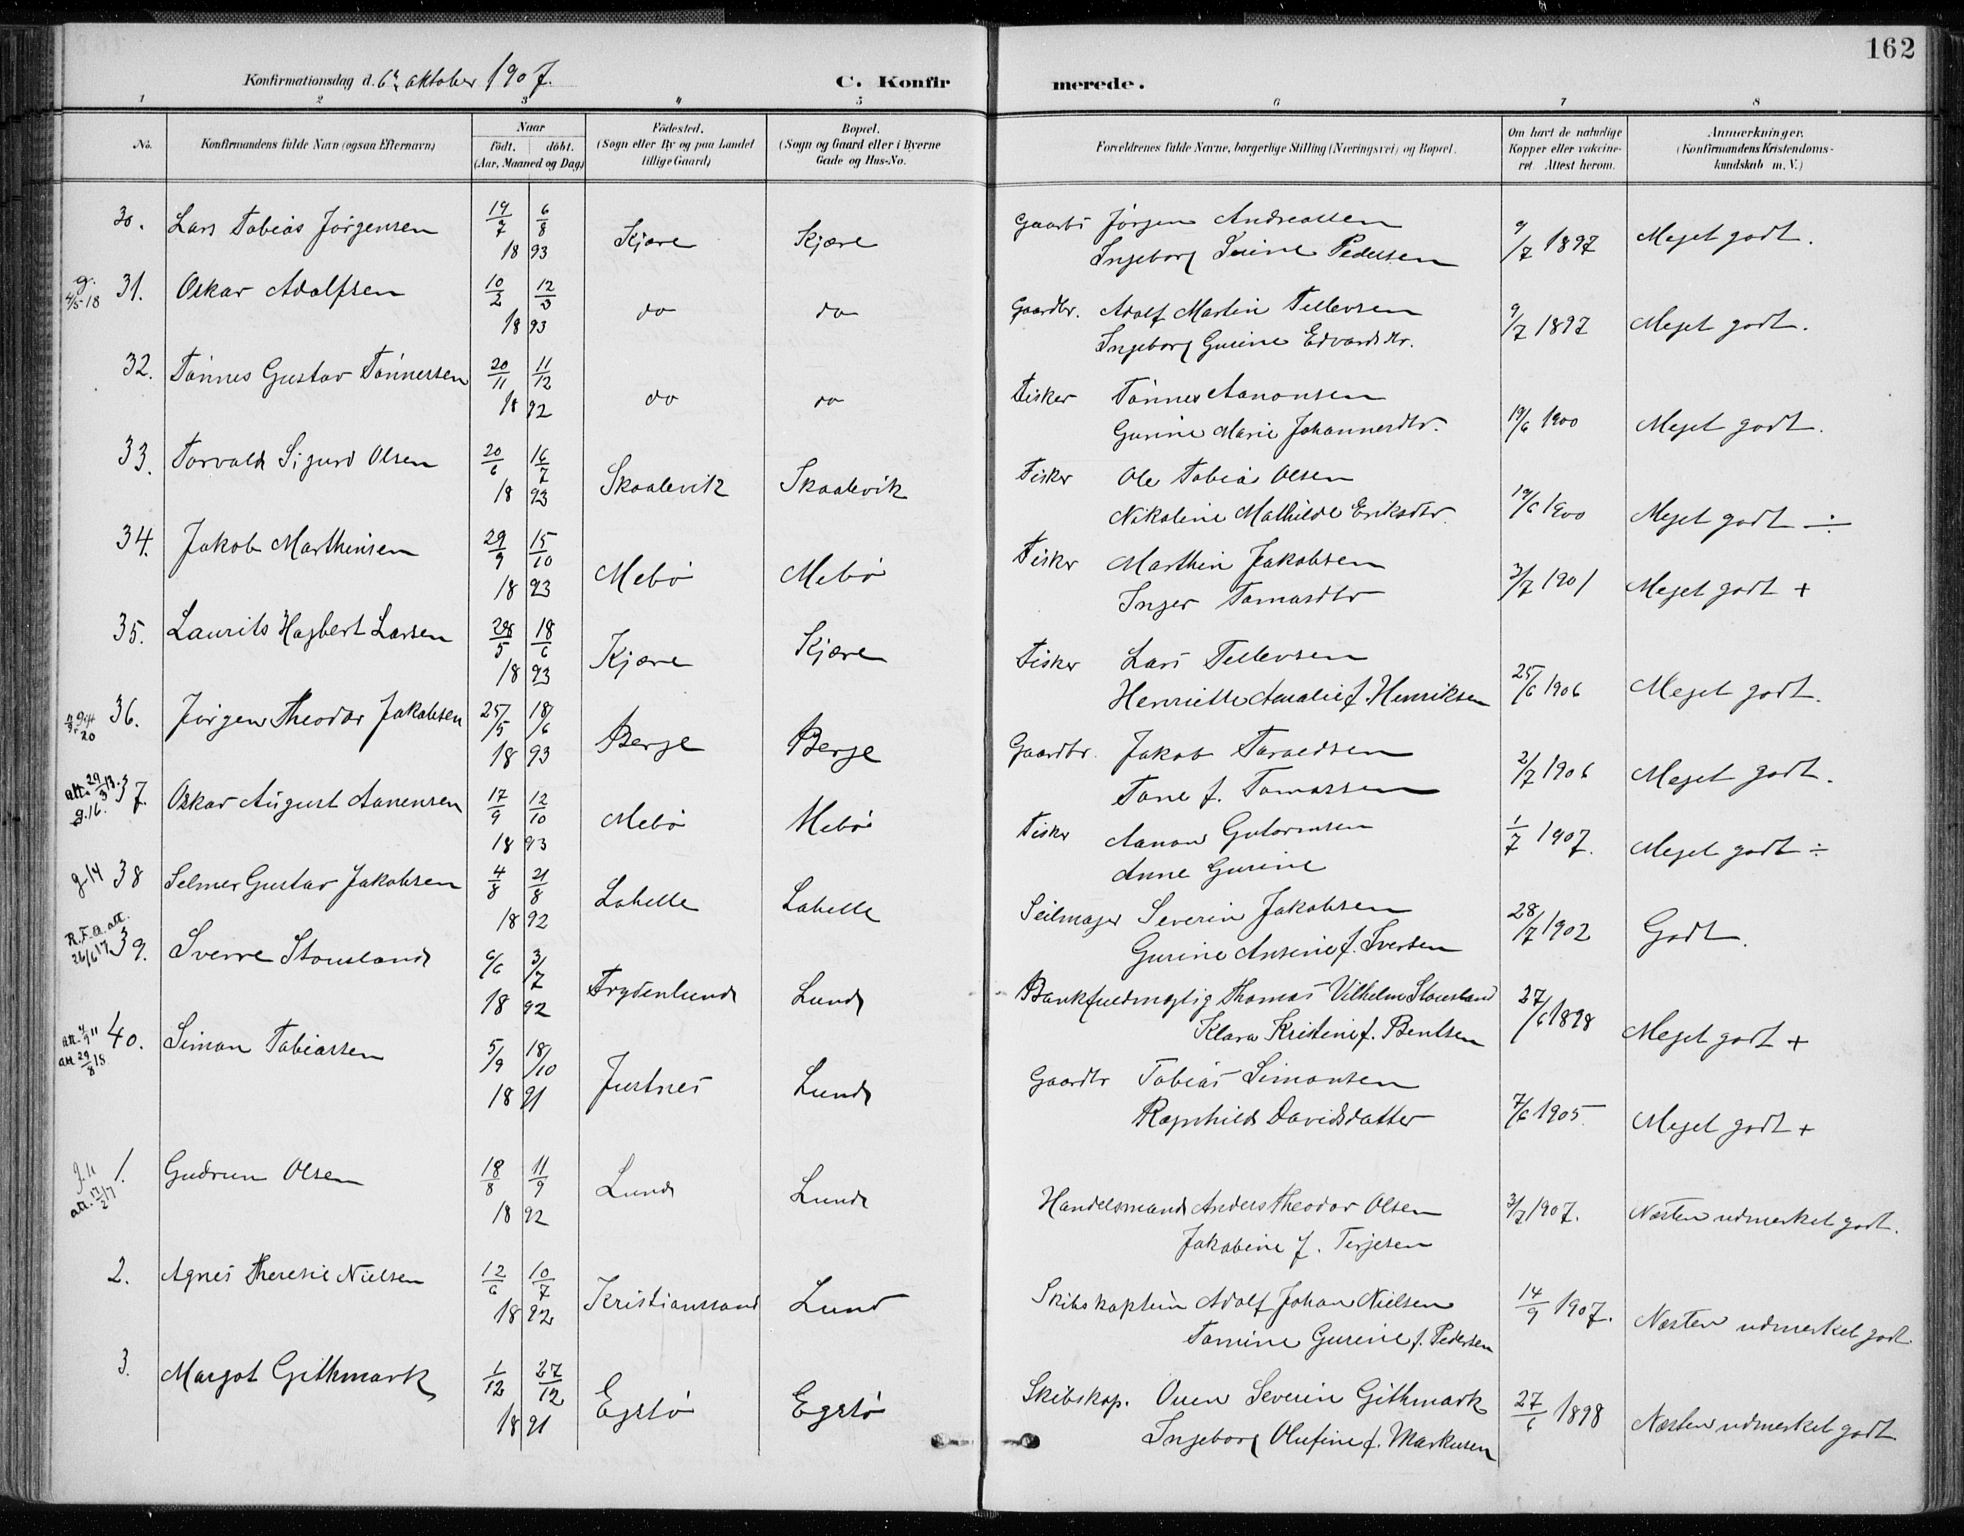 162
Konfirmationsdag d. 6te oktober 1907.
C. Konfirmerede.
1 2 3 4 5 6 7 8
No.
Konfirmandens fulde Navn (ogsaa Efternavn)
Naar
födt. döbt.
(Aar, Maaned og Dag)
Födested.
(Sogn eller By og paa Landet
tillige Gaard)
Bopæl.
(Sogn og Gaard eller i Byerne
Gade og Hus-No.
Forældrenes fulde Navne, borgerlige Stilling (Næringsvei) og Bopæl.
Om havt de naturlige
Kopper eller vakcine-
ret. Attest herom.
Anmærkninger.
(Konfirmandens Kristendoms-
kundskab m. V.)
30. Lars Tobias Jørgensen 19/7 6/8 1893 Kjære Kjære Gaardb. Jørgen Andreassen 9/7 1897 Meget godt.
Ingeborg Pedersen
g. 4/5-18 31. Oskar Adolfsen 10/2 12/3 1893 do do Gaardbr. Adolf Martin Tellevsen 9/7 1897 Meget godt.
Ingeborg Gurine Edvardsdtr.
32. Tönnes Gustav Tönnessen 20/11 11/12 1892 do do Fisker Tönnes Aanonsen 19/6 1900 Meget godt.
Gurine Marie Johannesdtr.
33. Torvald Sigurd Olsen 20/6 16/7 1893 Skaalevik Skaalevik Fisker Ole Tobias Olsen 19/6 1900 Meget godt ÷
Nikoline Mathilde Eriksdtr.
34. Jakob Marthinsen 29/9 15/10 1893 Mebö Mebö Fisker Marthin Jakobsen 3/7 1901 Meget godt +
Inger Tomasdtr
35. Laurits Hagbert Larsen 28/5 18/6 1893 Kjære Kjære Fisker Lars Tellevsen 25/6 1906 Meget godt.
Henriette Amalie f. Henriksen
20 36. Jörgen Theodor Jakobsen 25/5 18/6 1893 Berge Berge Gaardbr. Jakob Taraldsen 2/7 1906 Meget godt.
Tone f. Tomassen
att. 29/3 13. g. 16. 37. Oskar August Aanensen 17/9 12/10 1893 Mebö Mebö Fisker Aanon Gutormsen 1/7 1907. Meget godt ÷
Anne Gurine
g. 14 38 Selmer Gustav Jakobsen 4/8 21/8 1892 Lahelle Lahelle Seilmager Severin Jakobsen 28/7 1902 Godt.
Gurine Antine f. Iversen
R.F.a. att. 26/6 17 39. Sverre Stousland 6/6 3/7 1892 Frydenlund Lund Bankfuldmægtig Thomas Vilhelm Stousland 27/6 1898 Meget godt +
Klara Kristine f. Bentsen
att. 4/9 11 att. 29/8 18 40. Simon Tobiassen 5/9 18/10 1891 Justnes Lund Gaardbr Tobias Simonsen 7/6 1905 Meget godt +
Ragnhild Davidsdatter
g. 11 att. 17/2 17 1. Gudrun Olsen 18/8 11/9 1892 Lund Lund Handelsmand Anders Theodor Olsen 3/7 1907. Næsten udmerket godt.
Jakobine f. Terjesen
2. Agnes Theresie Nielsen 12/6 10/7 1892 Kristianssand Lund Skibskaptein Adolf Johan Nielsen 14/9 1907. Næsten udmerket godt
Tomine Gurine f. Pedersen
3. Margot Githmark 1/12 27/12 1891 Egstö Egstö Skibskap. Ouen Severin Githmark 27/6 1898 Næsten udmerket godt
Ingeborg Olufine f. Markusen